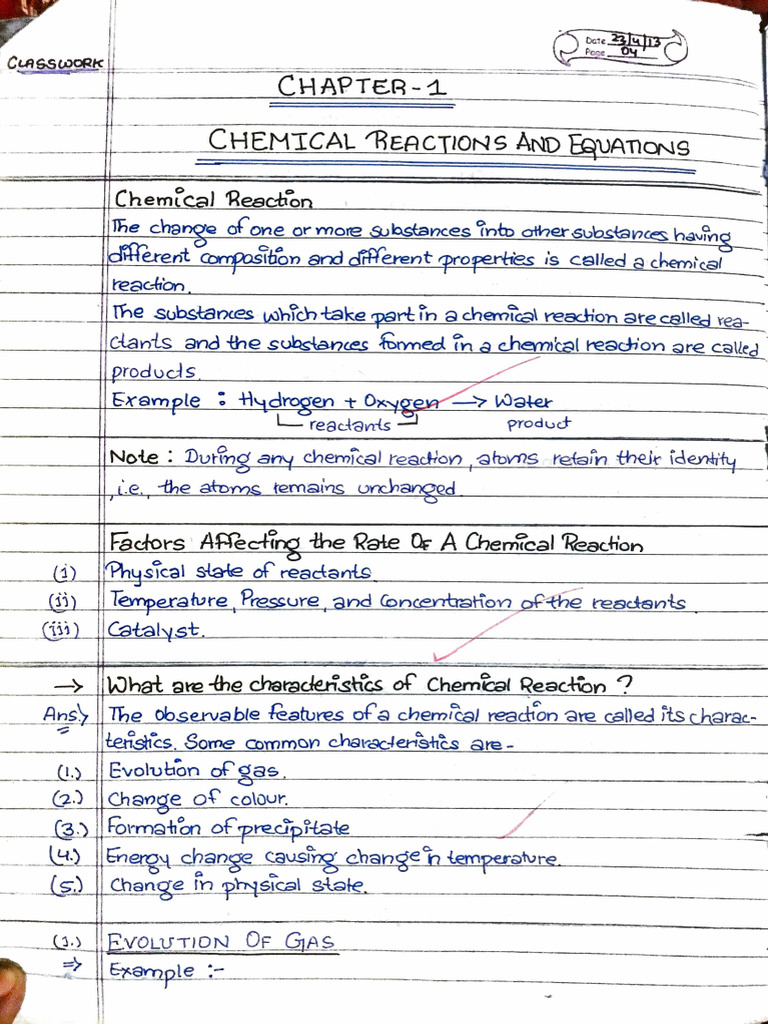 CLASSWORK
Date 23/4/13
Page 04
CHAPTER-1
CHEMICAL REACTIONS AND EQUATIONS
Chemical Reaction
The change of one or more substances into other substances having
different composition and different properties is called a chemical
reaction.
The substances which take part in a chemical reaction are called rea-
ctants and the substances formed in a chemical reaction are called
products.
Example : Hydrogen + Oxygen → Water
reactants product
Note : During any chemical reaction, atoms retain their identity
, i.e., the atoms remains unchanged.
Factors Affecting the Rate Of A Chemical Reaction
(i) Physical state of reactants.
(ii) Temperature, Pressure, and Concentration of the reactants.
(iii) Catalyst.
→ What are the characteristics of Chemical Reaction ?
Ans:) The observable features of a chemical reaction are called its charac-
teristics. Some common characteristics are -
(1.) Evolution of gas.
(2.) Change of colour.
(3.) Formation of precipitate
(4.) Energy change causing change in temperature.
(5.) Change in physical state.
(1.) EVOLUTION OF GAS
⇒ Example :-